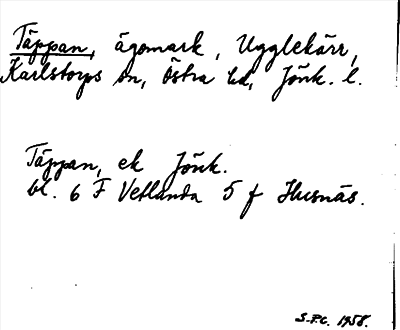 Täppan, ägomark, Ugglekärr,
Karlstorps sn, Östra hd, Jönk. l.
Täppan, ek Jönk.
bl. 6 F Vetlanda 5 f Husnäs.
S.P.C. 1958.